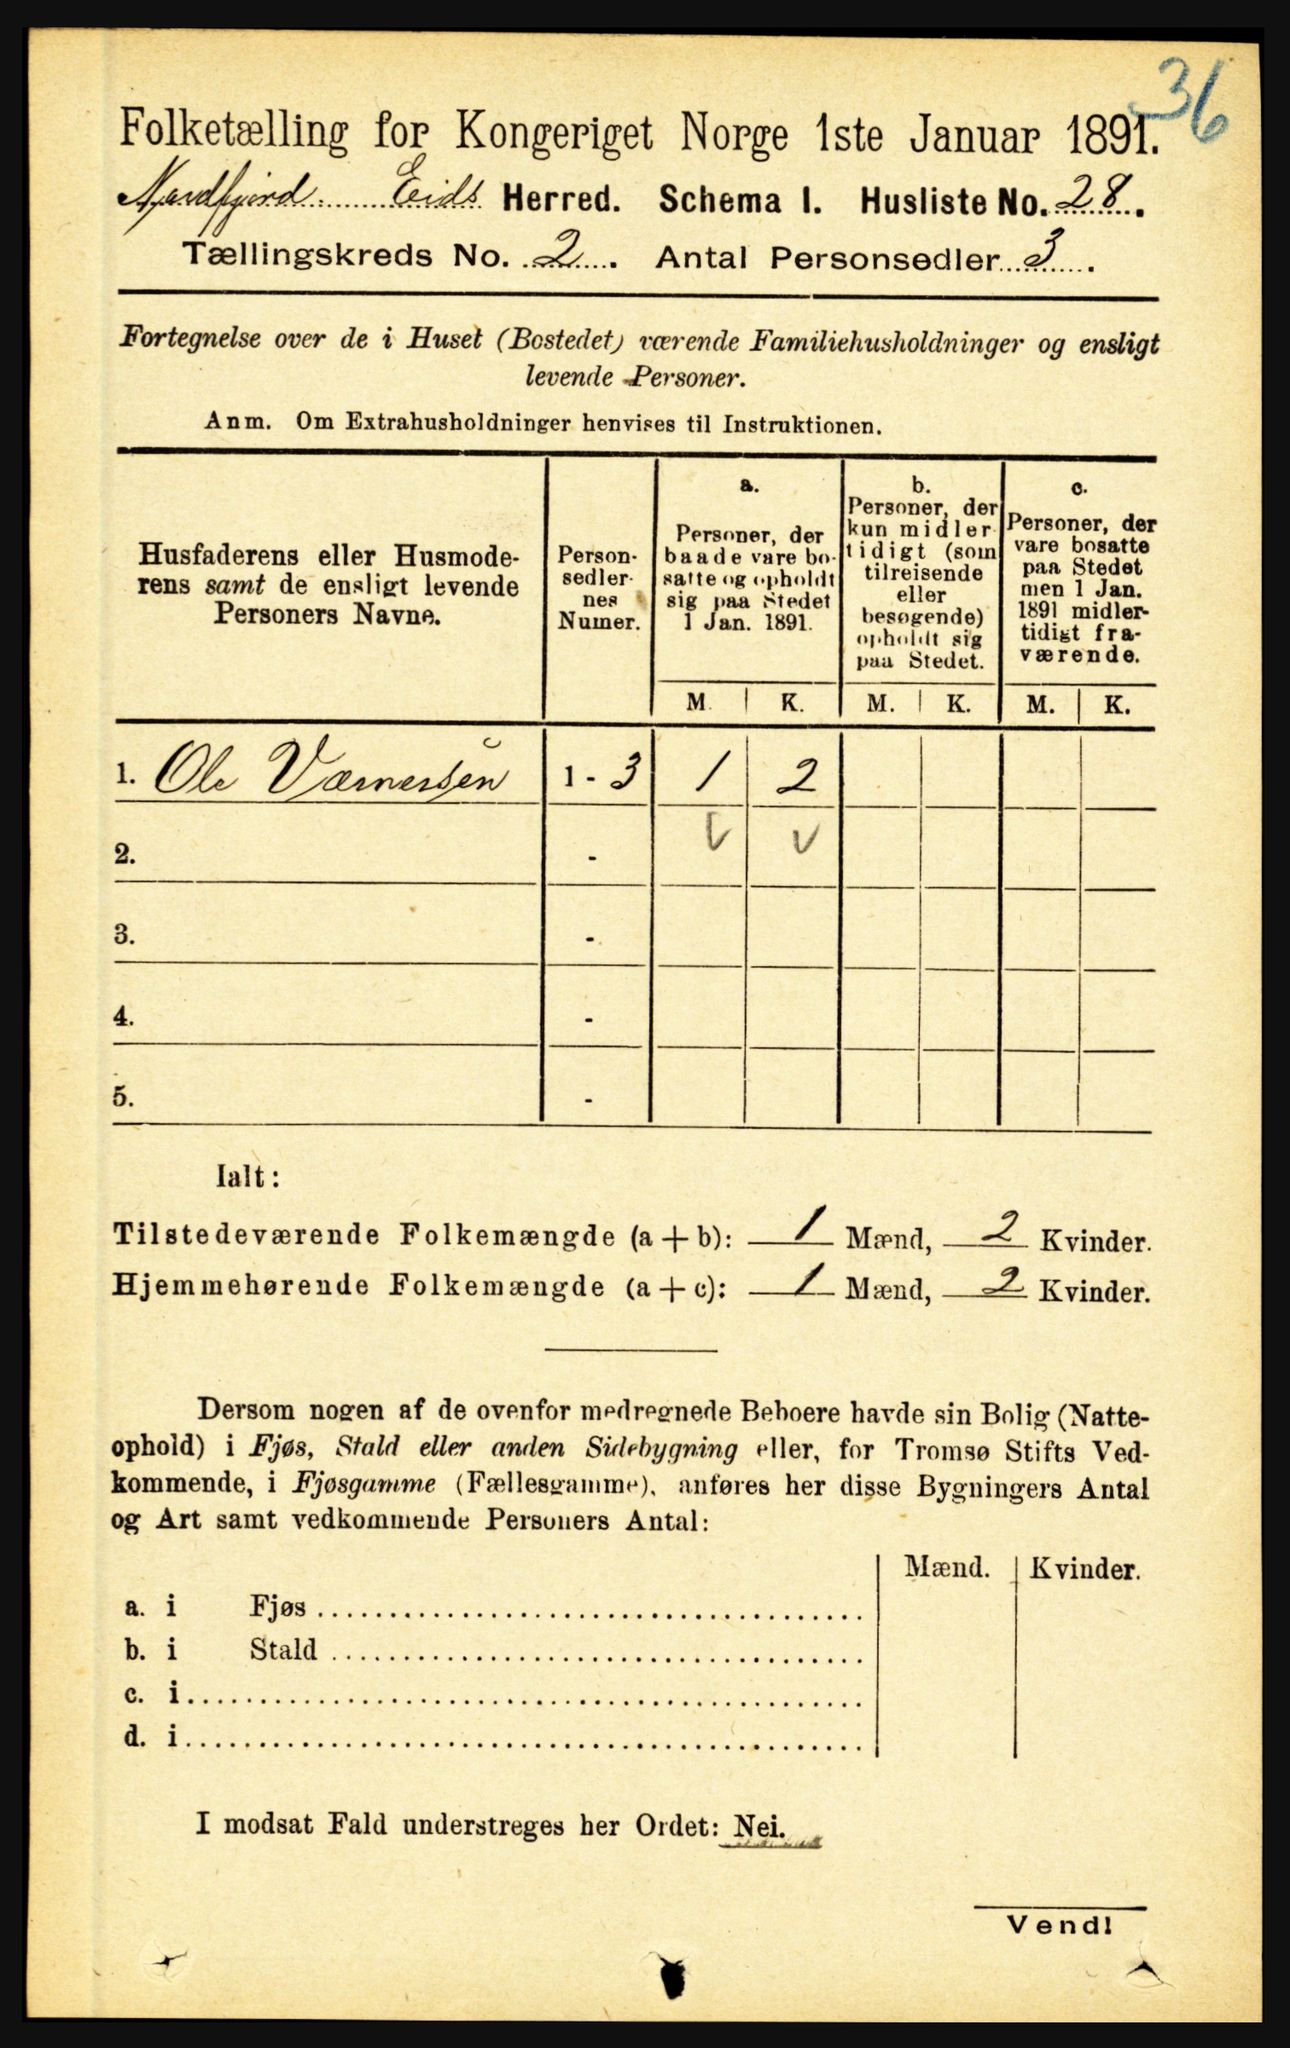 36
Folketælling for Kongeriget Norge 1ste Januar 1891.
Nordfjord Eids Herred. Schema I. Husliste No. 28.
Tællingskreds No. 2. Antal Personsedler 3.
Fortegnelse over de i Huset (Bostedet) værende Familiehusholdninger og ensligt
levende Personer.
Anm. Om Extrahusholdninger henvises til Instruktionen.
Husfaderens eller Husmode-
rens samt de ensligt levende
Personers Navne.
Person-
sedler-
nes
Numer.
a.
Personer, der
baade vare bo-
satte og opholdt
sig paa Stedet
1 Jan. 1891.
b.
Personer, der
kun midler-
tidigt (som
tilreisende
eller
besøgende)
opholdt sig
paa Stedet.
c.
Personer, der
vare bosatte
paa Stedet
men 1 Jan.
1891 midler-
tidigt fra-
værende.
M. K. M. K. M. K.
1. Ole Værnessen 1 - 3 1 2
2. -
3. -
4. -
5. -
Ialt:
Tilstedeværende Folkemængde (a + b): 1 Mænd, 2 Kvinder.
Hjemmehørende Folkemængde (a + c): 1 Mænd, 2 Kvinder.
Dersom nogen af de ovenfor medregnede Beboere havde sin Bolig (Natte-
ophold) i Fjøs, Stald eller anden Sidebygning eller, for Tromsø Stifts Ved-
kommende, i Fjøsgamme (Fællesgamme), anføres her disse Bygningers Antal
og Art samt vedkommende Personers Antal:
Mænd. Kvinder.
a. i Fjøs
b. i Stald
c. i
d. i
I modsat Fald understreges her Ordet: Nei.
Vend!